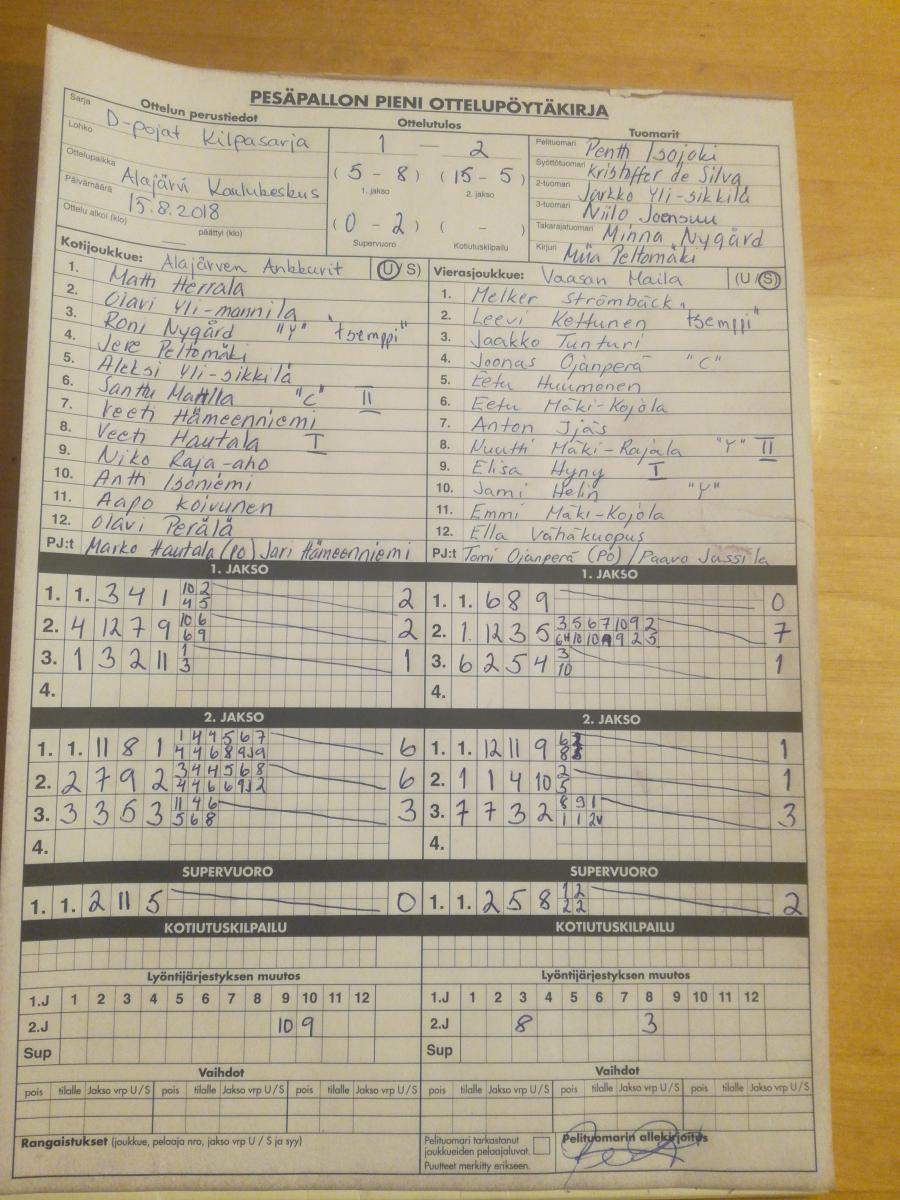 PESÄPALLON PIENI OTTELUPÖYTÄKIRJA
Ottelun perustiedot
Sarja D-pojat Kilpasarja
Lohko
Ottelupaikka Alajärvi Koulukeskus
Päivämäärä 15.8.2018
Ottelu alkoi (klo) — päättyi (klo)
Ottelutulos
1 — 2
(5 - 8) (15 - 5)
1. jakso 2. jakso
(0 - 2) ( - )
Supervuoro Kotiutuskilpailu
Tuomarit
Pelituomari Pentti Isojoki
Syöttötuomari Kristoffer de Silva
2-tuomari Jarkko Yli-sikkilä
3-tuomari Niilo Joensuu
Takarajatuomari Minna Nygård
Kirjuri Miia Peltomäki
Kotijoukkue: Alajärven Ankkurit (U/S)
1. Matti Herrala
2. Olavi Yli-mannila
3. Roni Nygård "Y" "tsemppi"
4. Jere Peltomäki
5. Aleksi Yli-sikkilä
6. Santtu Mattila "C" II
7. Veeti Hämeenniemi
8. Veeti Hautala I
9. Niko Raja-aho
10. Antti Isoniemi
11. Aapo Koivunen
12. Olavi Perälä
PJ:t Marko Hautala (PO) Jari Hämeenniemi
Vierasjoukkue: Vaasan Maila (U/S)
1. Melker Strömbäck
2. Leevi Kettunen "tsemppi"
3. Jaakko Tunturi
4. Joonas Ojanperä "C"
5. Eetu Huumonen
6. Eetu Mäki-Kojola
7. Anton Ijäs
8. Nuutti Mäki-Rajala "Y" II
9. Elisa Hyny I
10. Jami Helin "Y"
11. Emmi Mäki-Kojola
12. Ella Vähäkuopus
PJ:t Tomi Ojanperä (PO) / Paavo Jussila
1. JAKSO
1. 1. 3 4 1 10 2 2
4 5
2. 4 12 7 9 10 6 2
6 9
3. 1 3 2 11 1 1
3
4.
1. JAKSO
1. 1. 6 8 9 0
2. 1. 12 3 5 3 5 6 7 10 9 2 7
3. 6 2 5 4 3 1
10
4.
2. JAKSO
1. 1. 11 8 1 1 4 4 5 6 7 6
2. 2 7 9 2 3 4 4 5 6 8 6
3. 3 3 5 3 11 4 6 3
5 6 8
4.
2. JAKSO
1. 1. 12 11 9 1
2. 1 1 4 10 2 1
5
3. 7 7 3 2 8 9 1 3
4.
SUPERVUORO
1. 1. 2 11 5 0
SUPERVUORO
1. 1. 2 5 8 1 2 2
2 2
KOTIUTUSKILPAILU
KOTIUTUSKILPAILU
Lyöntijärjestyksen muutos
1.J 1 2 3 4 5 6 7 8 9 10 11 12
2.J 10 9
Sup
Lyöntijärjestyksen muutos
1.J 1 2 3 4 5 6 7 8 9 10 11 12
2.J 8 3
Sup
Vaihdot
pois tilalle Jakso vrp U/S pois tilalle Jakso vrp U/S pois tilalle Jakso vrp U/S
Vaihdot
pois tilalle Jakso vrp U/S pois tilalle Jakso vrp U/S pois tilalle Jakso vrp U/S
Rangaistukset (joukkue, pelaaja nro, jakso vrp U / S ja syy)
Pelituomari tarkastanut
joukkueiden pelaajaluvat.
Puutteet merkitty erikseen.
Pelituomarin allekirjoitus